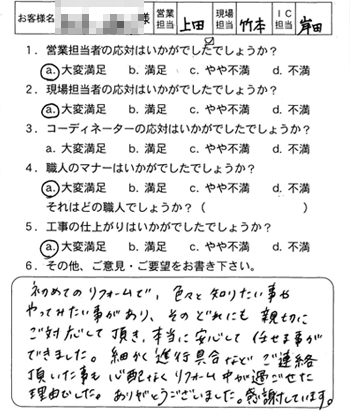 お客様名 様 営業担当 上田 現場担当 竹本 IC担当 岸田
1．営業担当者の応対はいかがでしたでしょうか？
a.大変満足 b.満足 c.やや不満 d.不満
2．現場担当者の応対はいかがでしたでしょうか？
a.大変満足 b.満足 c.やや不満 d.不満
3．コーディネーターの応対はいかがでしたでしょうか？
a.大変満足 b.満足 c.やや不満 d.不満
4．職人のマナーはいかがでしたでしょうか？
a.大変満足 b.満足 c.やや不満 d.不満
それはどの職人でしょうか？（ ）
5．工事の仕上がりはいかがでしたでしょうか？
a.大変満足 b.満足 c.やや不満 d.不満
6．その他、ご意見・ご要望をお書き下さい。
初めてのリフォームで、色々と知りたい事や
やってみたい事があり、そのどれにも親切に
ご対応して頂き、本当に安心して任せる事が
できました。細かく進行具合などご連絡
頂いた事も心配なくリフォーム中が過ごせた
理由でした。ありがとうございました。感謝しています。